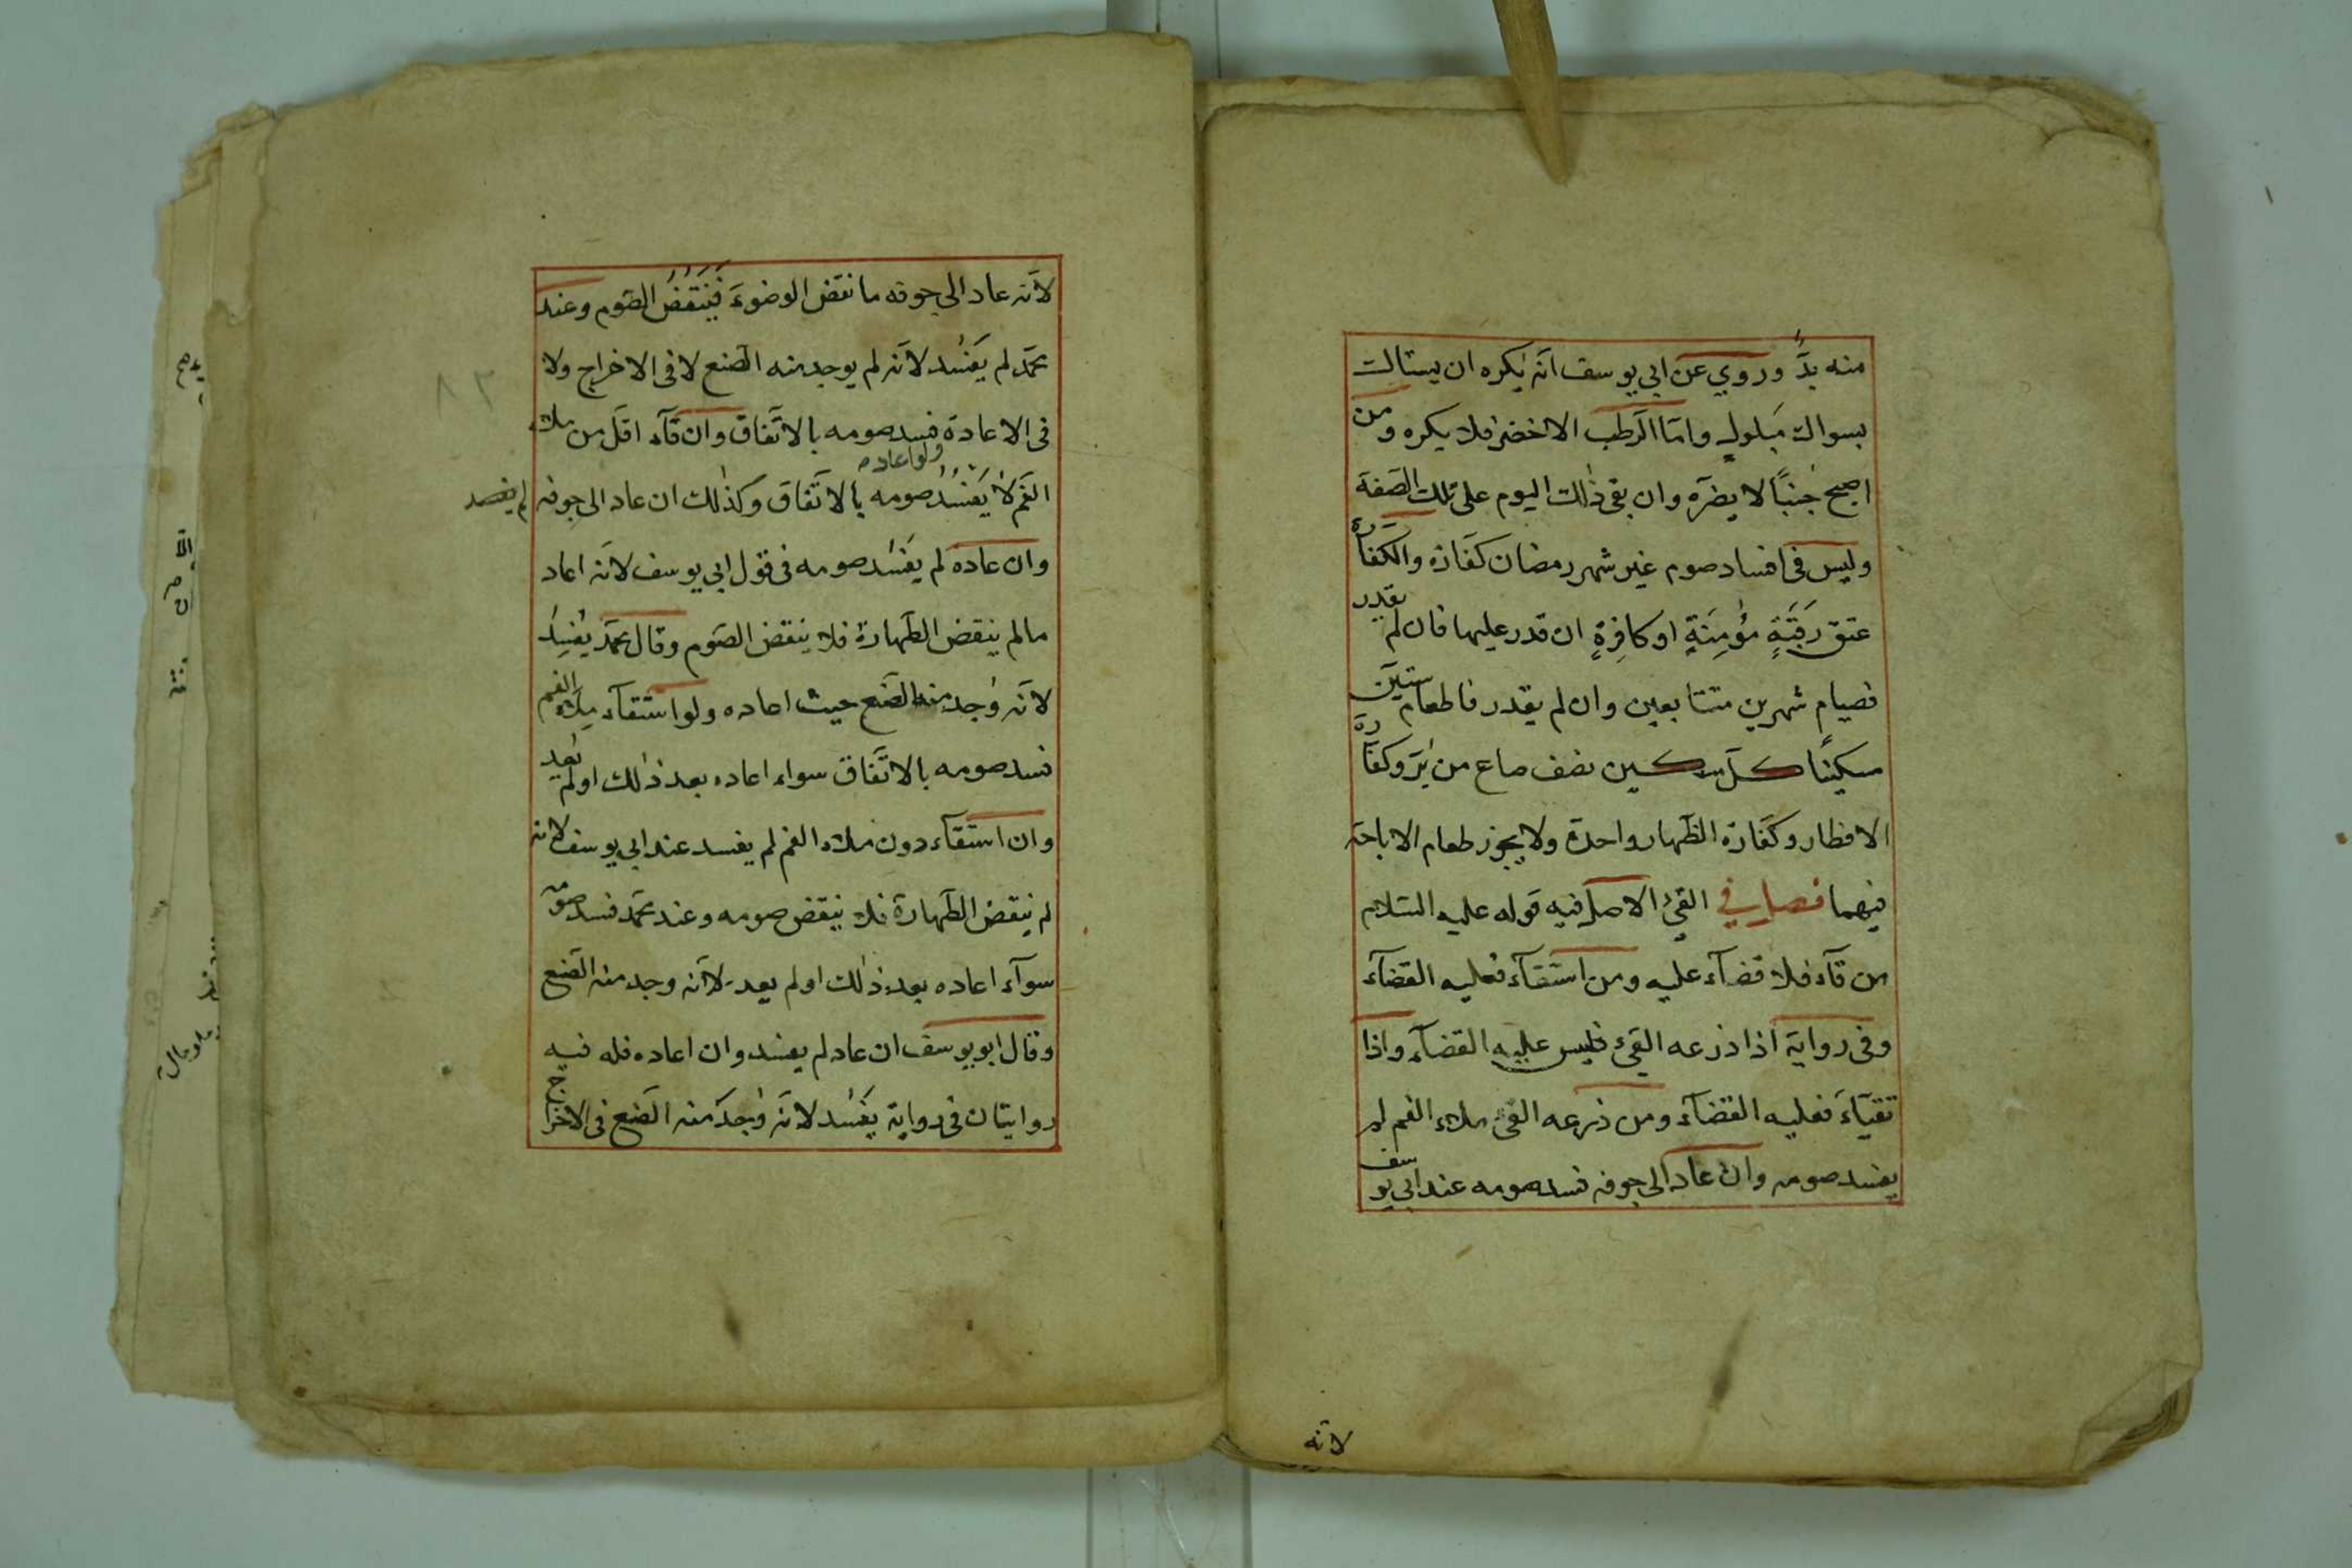 منه بدٌّ وروي عن ابي يوسف انّه يكره ان يستاك
بسواك مَبلولٍ وامّا الرّطب الاخضر فلا يكره ومن
اصبح جُنبًا لا يضرّه وان بقي ذٰلك اليوم على تلك الصّفة
وليس في افساد صوم غير شهر رمضان كفّارة والكفّارة
عتق رَقَبَةٍ مؤمِنَةٍ او كافِرةٍ ان قدر عليها فان لم يقدر
فصيام شهرين متتابعين وان لم يقدر فاطعام ستّين
مسكينًا كلّ مسكين نصف صاع من بُرّ وكفّارة
الافطار وكفّارة الظّهار واحدة ولا يجوز طعام الاباحة
فيهما فصل في القيء الاصل فيه قوله عليه السّلام
من قآء فلا قضآء عليه ومن استقآء فعليه القضآء
وفي رواية اذا ذرعه القيء فليس عليه القضآء واذا
تقيّآءَ فعليه القضآء ومن ذرعه القيء ملاء الفم لم
يفسد صومه وان عاد الى جوفه فسد صومه عند ابي يوسف
لانّه
لانّه عاد الى جوفه ما نقض الوضوءَ فيَنتقضُ الصّوم وعند
محمّد لم يَفسُد لانّه لم يوجد منه الصّنع لا في الاخراج ولا
في الاعادة فسد صومه بالاتّفاق وان قآء اقلّ من ملاء
ولو اعاده
الفم لا يَفسُدُ صومه بالاتّفاق وكذٰلك ان عاد الى جوفه
لم يفسد
وان عاده لم يَفسُد صومه في قول ابي يوسف لانّه اعاد
ما لم ينقض الطّهارة فلا ينقض الصّوم وقال محمّد يُفسِدُ
لانّه وُجد منه الصّنع حيث اعاده ولو استقآء ملاء الفم
فسد صومه بالاتّفاق سواء اعاده بعد ذٰلك او لم يُعِد
وان استقآء دون ملاء الفم لم يفسد عند ابي يوسف لانه
لم ينقض الطّهارة فلا ينقض صومه وعند محمّد فسد صومه
سوآء اعاده بعد ذٰلك او لم يعد لانّه وجد منه الصّنع
وقال ابو يوسف ان عاد لم يفسد وان اعاده فله فيه
روايتان في رواية يَفسُد لانّه وُجدَ منه الصّنع في الاخراج
٨٢